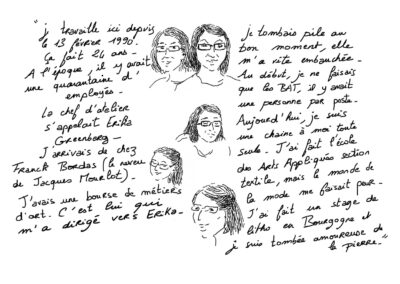 "j travaille ici depuis
le 13 février 1990.
Ça fait 24 ans -
A l'époque, il y avait
une quarantaine d'
employés -
Le chef d'atelier
s'appelait Erika
Greenberg -
J'arrivais de chez
Franck Bordas (le neveu
de Jacques Mourlot).
J'avais une bourse de métiers
d'art. C'est lui qui
m'a dirigé vers Erika -
je tombais pile au
bon moment, elle
m'a vite embauchée -
Au début, je ne faisais
que les BAT, il y avait
une personne par poste -
Aujourd'hui, je suis
une chaîne à moi toute
seule - J'ai fait l'école
des Arts Appliqués section
textile, mais le monde de
la mode me faisait peur -
J'ai fait un stage de
litho en Bourgogne et
je suis tombée amoureuse de
la pierre -"